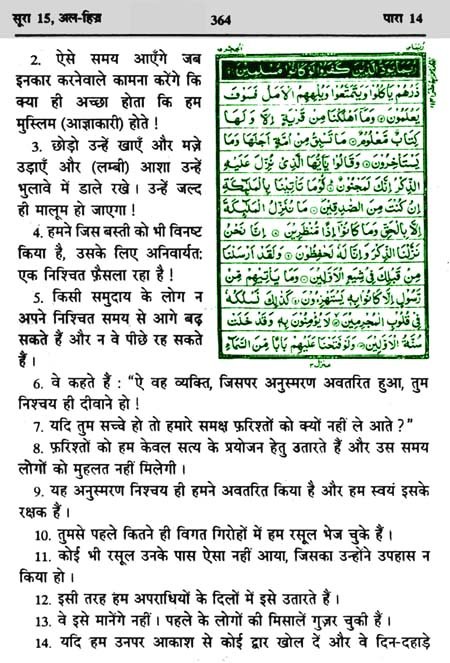 सूरा 15, अल-हिज्र 364 पारा 14
2. ऐसे समय आएँगे जब
इनकार करनेवाले कामना करेंगे कि
क्या ही अच्छा होता कि हम
मुस्लिम (आज्ञाकारी) होते !
3. छोड़ो उन्हें खाएँ और मज़े
उड़ाएँ और (लम्बी) आशा उन्हें
भुलावे में डाले रखे। उन्हें जल्द
ही मालूम हो जाएगा !
4. हमने जिस बस्ती को भी विनष्ट
किया है, उसके लिए अनिवार्यतः
एक निश्चित फ़ैसला रहा है !
5. किसी समुदाय के लोग न
अपने निश्चित समय से आगे बढ़
सकते हैं और न वे पीछे रह सकते
हैं।
رُبَمَا يَوَدُّ الَّذِيْنَ كَفَرُوْا لَوْ كَانُوْا مُسْلِمِيْنَ
ذَرْهُمْ يَاْكُلُوْا وَيَتَمَتَّعُوْا وَيُلْهِهِمُ الْاَمَلُ فَسَوْفَ
يَعْلَمُوْنَ وَمَآ اَهْلَكْنَا مِنْ قَرْيَةٍ اِلَّا وَلَهَا
كِتَابٌ مَّعْلُوْمٌ مَا تَسْبِقُ مِنْ اُمَّةٍ اَجَلَهَا وَمَا
يَسْتَاْخِرُوْنَ وَقَالُوْا يٰٓاَيُّهَا الَّذِيْ نُزِّلَ عَلَيْهِ
الذِّكْرُ اِنَّكَ لَمَجْنُوْنٌ لَوْ مَا تَاْتِيْنَا بِالْمَلٰٓئِكَةِ
اِنْ كُنْتَ مِنَ الصّٰدِقِيْنَ مَا نُنَزِّلُ الْمَلٰٓئِكَةَ
اِلَّا بِالْحَقِّ وَمَا كَانُوْٓا اِذًا مُّنْظَرِيْنَ اِنَّا نَحْنُ
نَزَّلْنَا الذِّكْرَ وَاِنَّا لَهٗ لَحٰفِظُوْنَ وَلَقَدْ اَرْسَلْنَا
مِنْ قَبْلِكَ فِيْ شِيَعِ الْاَوَّلِيْنَ وَمَا يَاْتِيْهِمْ مِّنْ
رَّسُوْلٍ اِلَّا كَانُوْا بِهٖ يَسْتَهْزِءُوْنَ كَذٰلِكَ نَسْلُكُهٗ
فِيْ قُلُوْبِ الْمُجْرِمِيْنَ لَا يُؤْمِنُوْنَ بِهٖ وَقَدْ خَلَتْ
سُنَّةُ الْاَوَّلِيْنَ وَلَوْ فَتَحْنَا عَلَيْهِمْ بَابًا مِّنَ السَّمَآءِ
6. वे कहते हैं : “ऐ वह व्यक्ति, जिसपर अनुस्मरण अवतरित हुआ, तुम
निश्चय ही दीवाने हो !
7. यदि तुम सच्चे हो तो हमारे समक्ष फ़रिश्तों को क्यों नहीं ले आते ?”
8. फ़रिश्तों को हम केवल सत्य के प्रयोजन हेतु उतारते हैं और उस समय
लोगों को मुहलत नहीं मिलेगी।
9. यह अनुस्मरण निश्चय ही हमने अवतरित किया है और हम स्वयं इसके
रक्षक हैं।
10. तुमसे पहले कितने ही विगत गिरोहों में हम रसूल भेज चुके हैं।
11. कोई भी रसूल उनके पास ऐसा नहीं आया, जिसका उन्होंने उपहास न
किया हो।
12. इसी तरह हम अपराधियों के दिलों में इसे उतारते हैं।
13. वे इसे मानेंगे नहीं। पहले के लोगों की मिसालें गुज़र चुकी हैं।
14. यदि हम उनपर आकाश से कोई द्वार खोल दें और वे दिन-दहाड़े